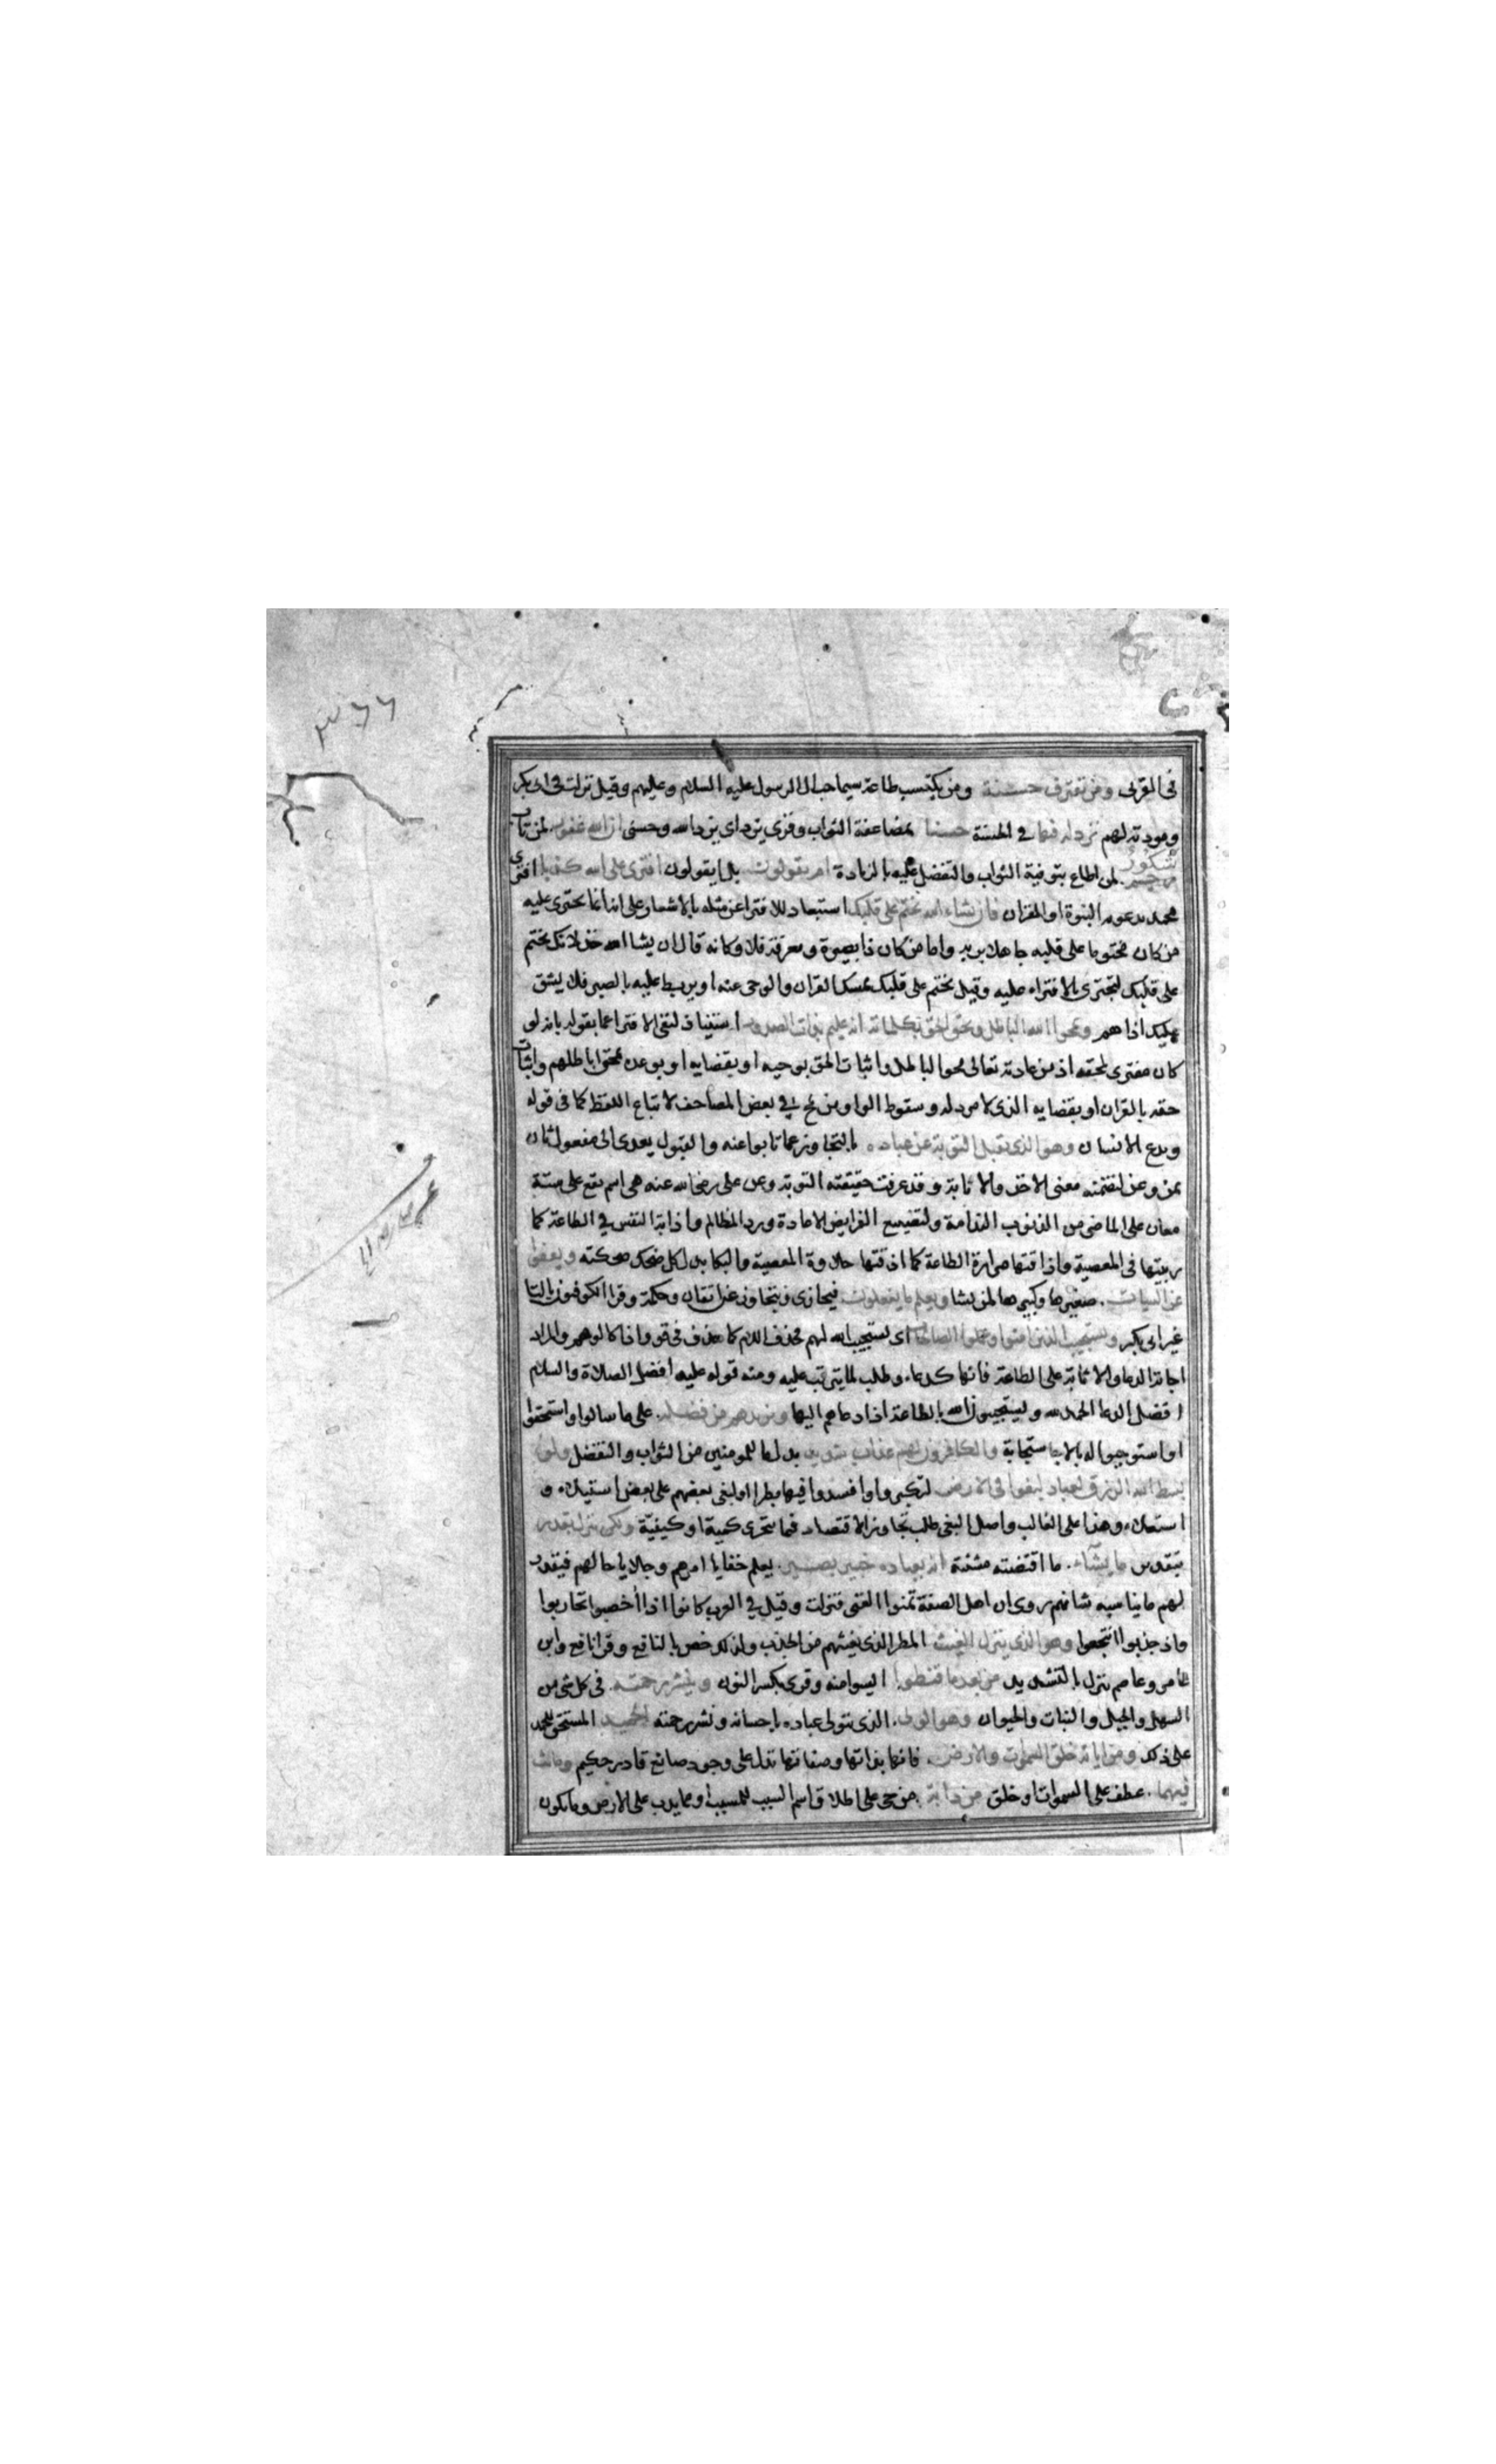 ٣٦٦
فى القربى ومن يقترف حسنة ومن يكتسب طاعة سيما حب ال الرسول عليه السلام وعليهم وقيل نزلت فى ابى بكر
ومودته لهم نزد له فيها فى الحسنة حسنا بمضاعفة الثواب وقرى يزد اى يزد الله وحسنى ان الله غفور لمن تاب
شكور لمن اطاع بتوفية الثواب والتفضل عليه بالزيادة ام يقولون بل ايقولون افترى على الله كذبا افترى
محمد بدعوه النبوة او القران فان يشاء الله يختم على قلبك استبعاد للافترا عن مثله بالاشعار على انه انما يجترى عليه
من كان مختوما على قلبه جاهلا بربه واما من كان ذا بصيرة ومعرفة فلا وكانه قال ان يشا الله خذلانك يختم
على قلبك لتجترى بالافتراء عليه وقيل يختم على قلبك يمسك القران والوحى عنه او يربط عليه بالصبر فلا يشق
عليك اذاهم ويمحوا الله الباطل ويحق الحق بكلماته انه عليم بذات الصدور استيناف لنفى الافترا عما يقوله بانه لو
كان مفترى لمحقه اذ من عادته تعالى محو الباطل واثبات الحق بوحيه او بقضايه او بوعده بمحق باطلهم واثبات
حقه بالقران او بقضايه الذى لا مرد له وسقوط الواو من يمح فى بعض المصاحف لاتباع اللفظ كما فى قوله
ويدع الانسان وهو الذى يقبل التوبة عن عباده بالتجاوز عما تابوا عنه والقبول يعدى الى مفعول ثان
بمن وعن لتضمنه معنى الاخذ والابانة وقد عرفت حقيقته التوبة وعن على رضى الله عنه هى اسم يقع على ستة
معان على الماضى من الذنوب الندامة ولتضييع الفرايض الاعادة ورد المظالم واذابة النفس فى الطاعة كما
ربيتها فى المعصية واذاقتها مرارة الطاعة كما اذقتها حلاوة المعصية والبكا بدل كل ضحك ضحكته ويعفوا
عن السيات صغيرها وكبيرها لمن يشا ويعلم ما يفعلون فيجازى ويتجاوز عن اتقان وحكمة وقرا الكوفيون بالتا
غير ابى بكر ويستجيب الذين امنوا وعملوا الصالحات اى يستجيب الله لهم فحذف اللام كما حذف فى قو واذا كالوهم والمراد
اجابة الدعا والاثابة على الطاعة فانها كدعاء وطلب لما يترتب عليه ومنه قوله عليه افضل الصلاة والسلام
افضل الدعا الحمد لله ويستجيبون الله بالطاعة اذا دعاهم اليها ويزيدهم من فضله على ما سالوا واستحقوا
او استوجبوا له بالاستجابة والكافرون لهم عذاب شديد بدل ما للمومنين من الثواب والتفضل ولو
بسط الله الرزق لعباده لبغوا فى الارض لتكبروا وافسدوا فيها بطرا او لبغى بعضهم على بعض استيلاء و
استعلاء وهذا على الغالب واصل البغى طلب تجاوز الاقتصاد فيما يتحرى كمية او كيفية ولكن ينزل بقدر
بتقدير ما يشاء ما اقتضته مشئته انه بعباده خبير بصير يعلم خفايا امرهم وجلايا حالهم فيقدر
لهم ما يناسبه شانهم روى ان اهل الصفة تمنوا الغنى فنزلت وقيل فى العرب كانوا اذا اخصبوا تحاربوا
واذ جذبوا انتجعوا وهو الذى ينزل الغيث المطر الذى يغيثهم من الجدب ولذلك خص بالنافع وقرا نافع وابن
عامر وعاصم ينزل بالتشديد من بعد ما قنطوا ايسوا منه وقرى بكسر النون وينشر رحمته فى كل شى من
السهل والجبل والنبات والحيوان وهو الولى الذى يتولى عباده باحسانه ونشر رحمته الحميد المستحق للحمد
على ذلك ومن اياته خلق السموات والارض فانها بذاتها وصفاتها تدل على وجود صانع قادر حكيم وما بث
فيهما عطف على السموات او خلق من دابة من حى على اطلاق اسم السبب للمسبب او مما يدب على الارض وما يكون